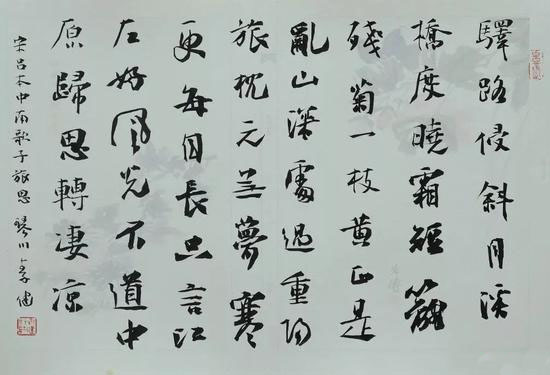 驛路侵斜月溪
橋度曉霜短籬
殘菊一枝黃正是
亂山深處過重陽
旅枕元無夢寒
更每自長只言江
左好風光不道中
原歸思轉淒涼
宋吕本中南歌子旅思 琴川